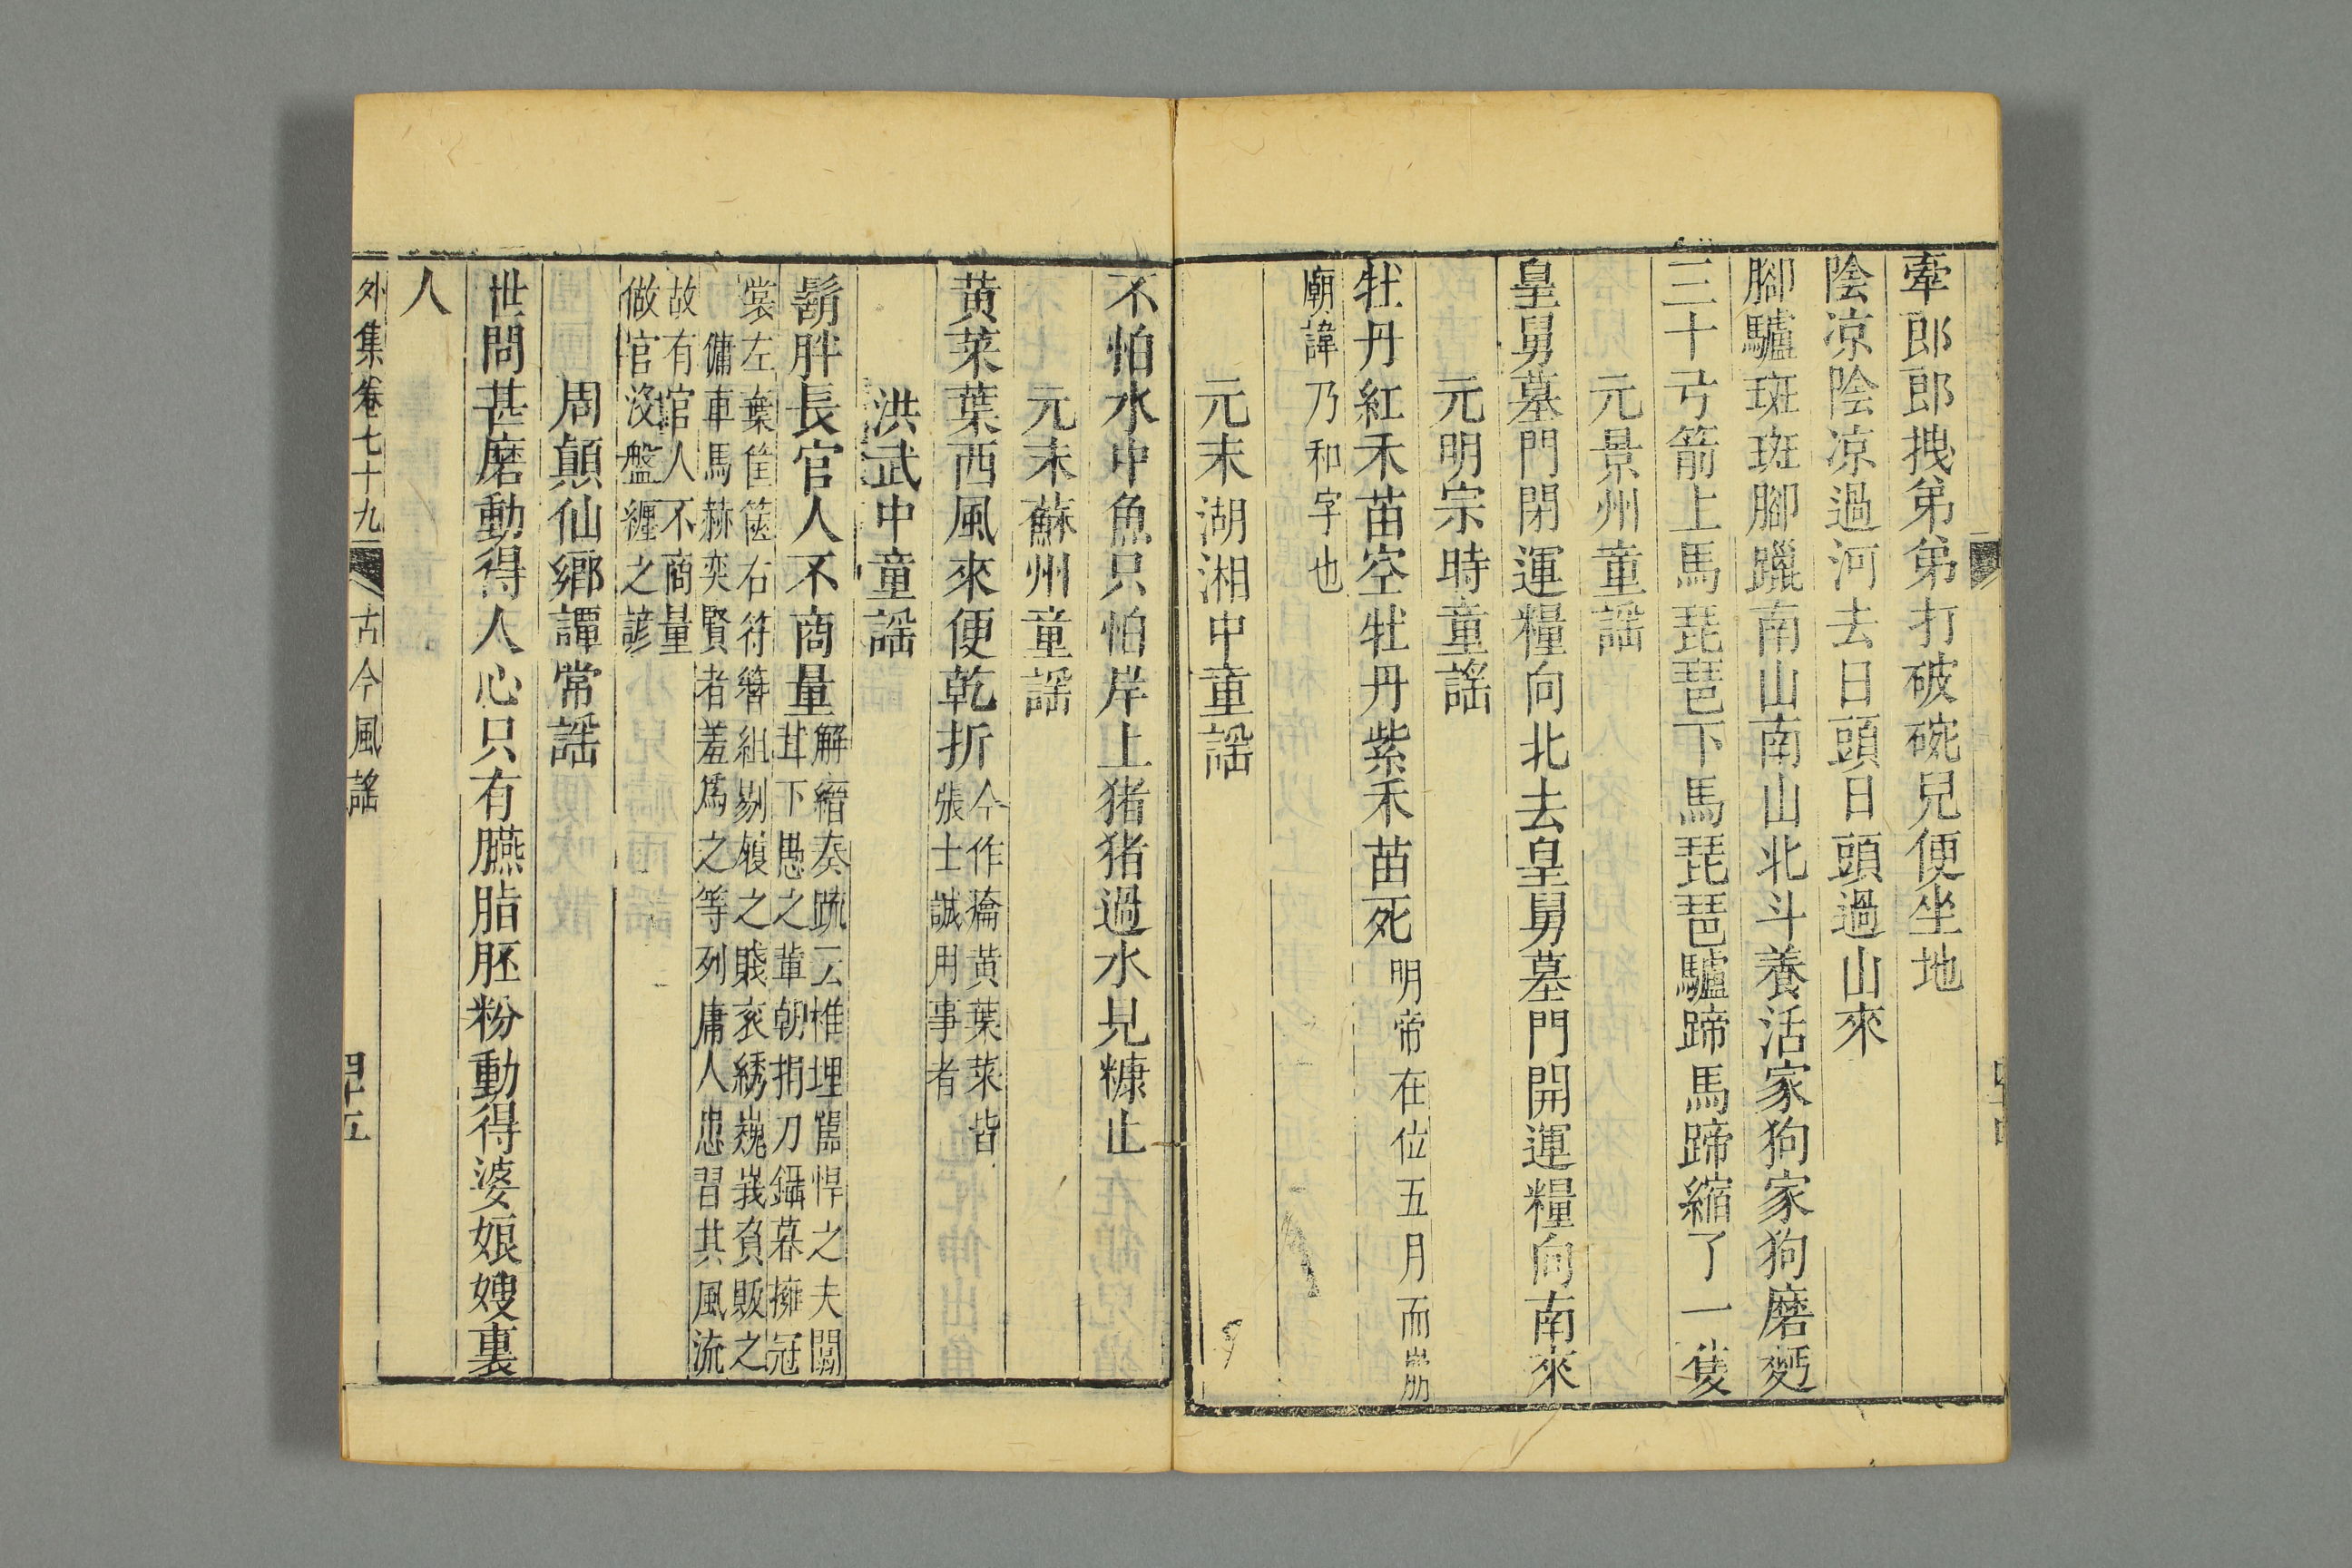 牽郎郎拽弟弟打破碗兒便坐地
陰凉陰凉過河去日頭日頭過山來
腳驢斑斑腳躐南山南山北斗養活家狗家狗磨麪
三十弓箭上馬琵琶下馬琵琶驢蹄馬蹄縮了一隻
元景州童謡
皇舅墓門閉運糧向北去皇舅墓門開運糧向南來
元明宗時童謡
牡丹紅禾苗空牡丹紫禾苗死明帝在位五月而崩
廟諱乃和字也
元末湖湘中童謡
不怕水中魚只怕岸上猪猪過水見糠止
元末蘇州童謡
黄菜葉西風來便乾折今作齏黄葉菜皆
張士誠用事者
洪武中童謡
鬍胖長官人不商量解縉奏䟽云椎埋嚚悍之夫闒
茸下愚之軰朝捐刀鑷暮擁冠
裳左棄筐篋右符簪組剔履之賤衮綉巍峩負販之
傭車馬赫奕賢者羞爲之等列庸人悉習其風流
故有官人不商量
做官没盤纏之諺
周顛仙鄉譚常謡
世間甚麽動得人心只有臙脂胚粉動得婆娘嫂裏
人
外集卷七十九
古今風謡
四十五